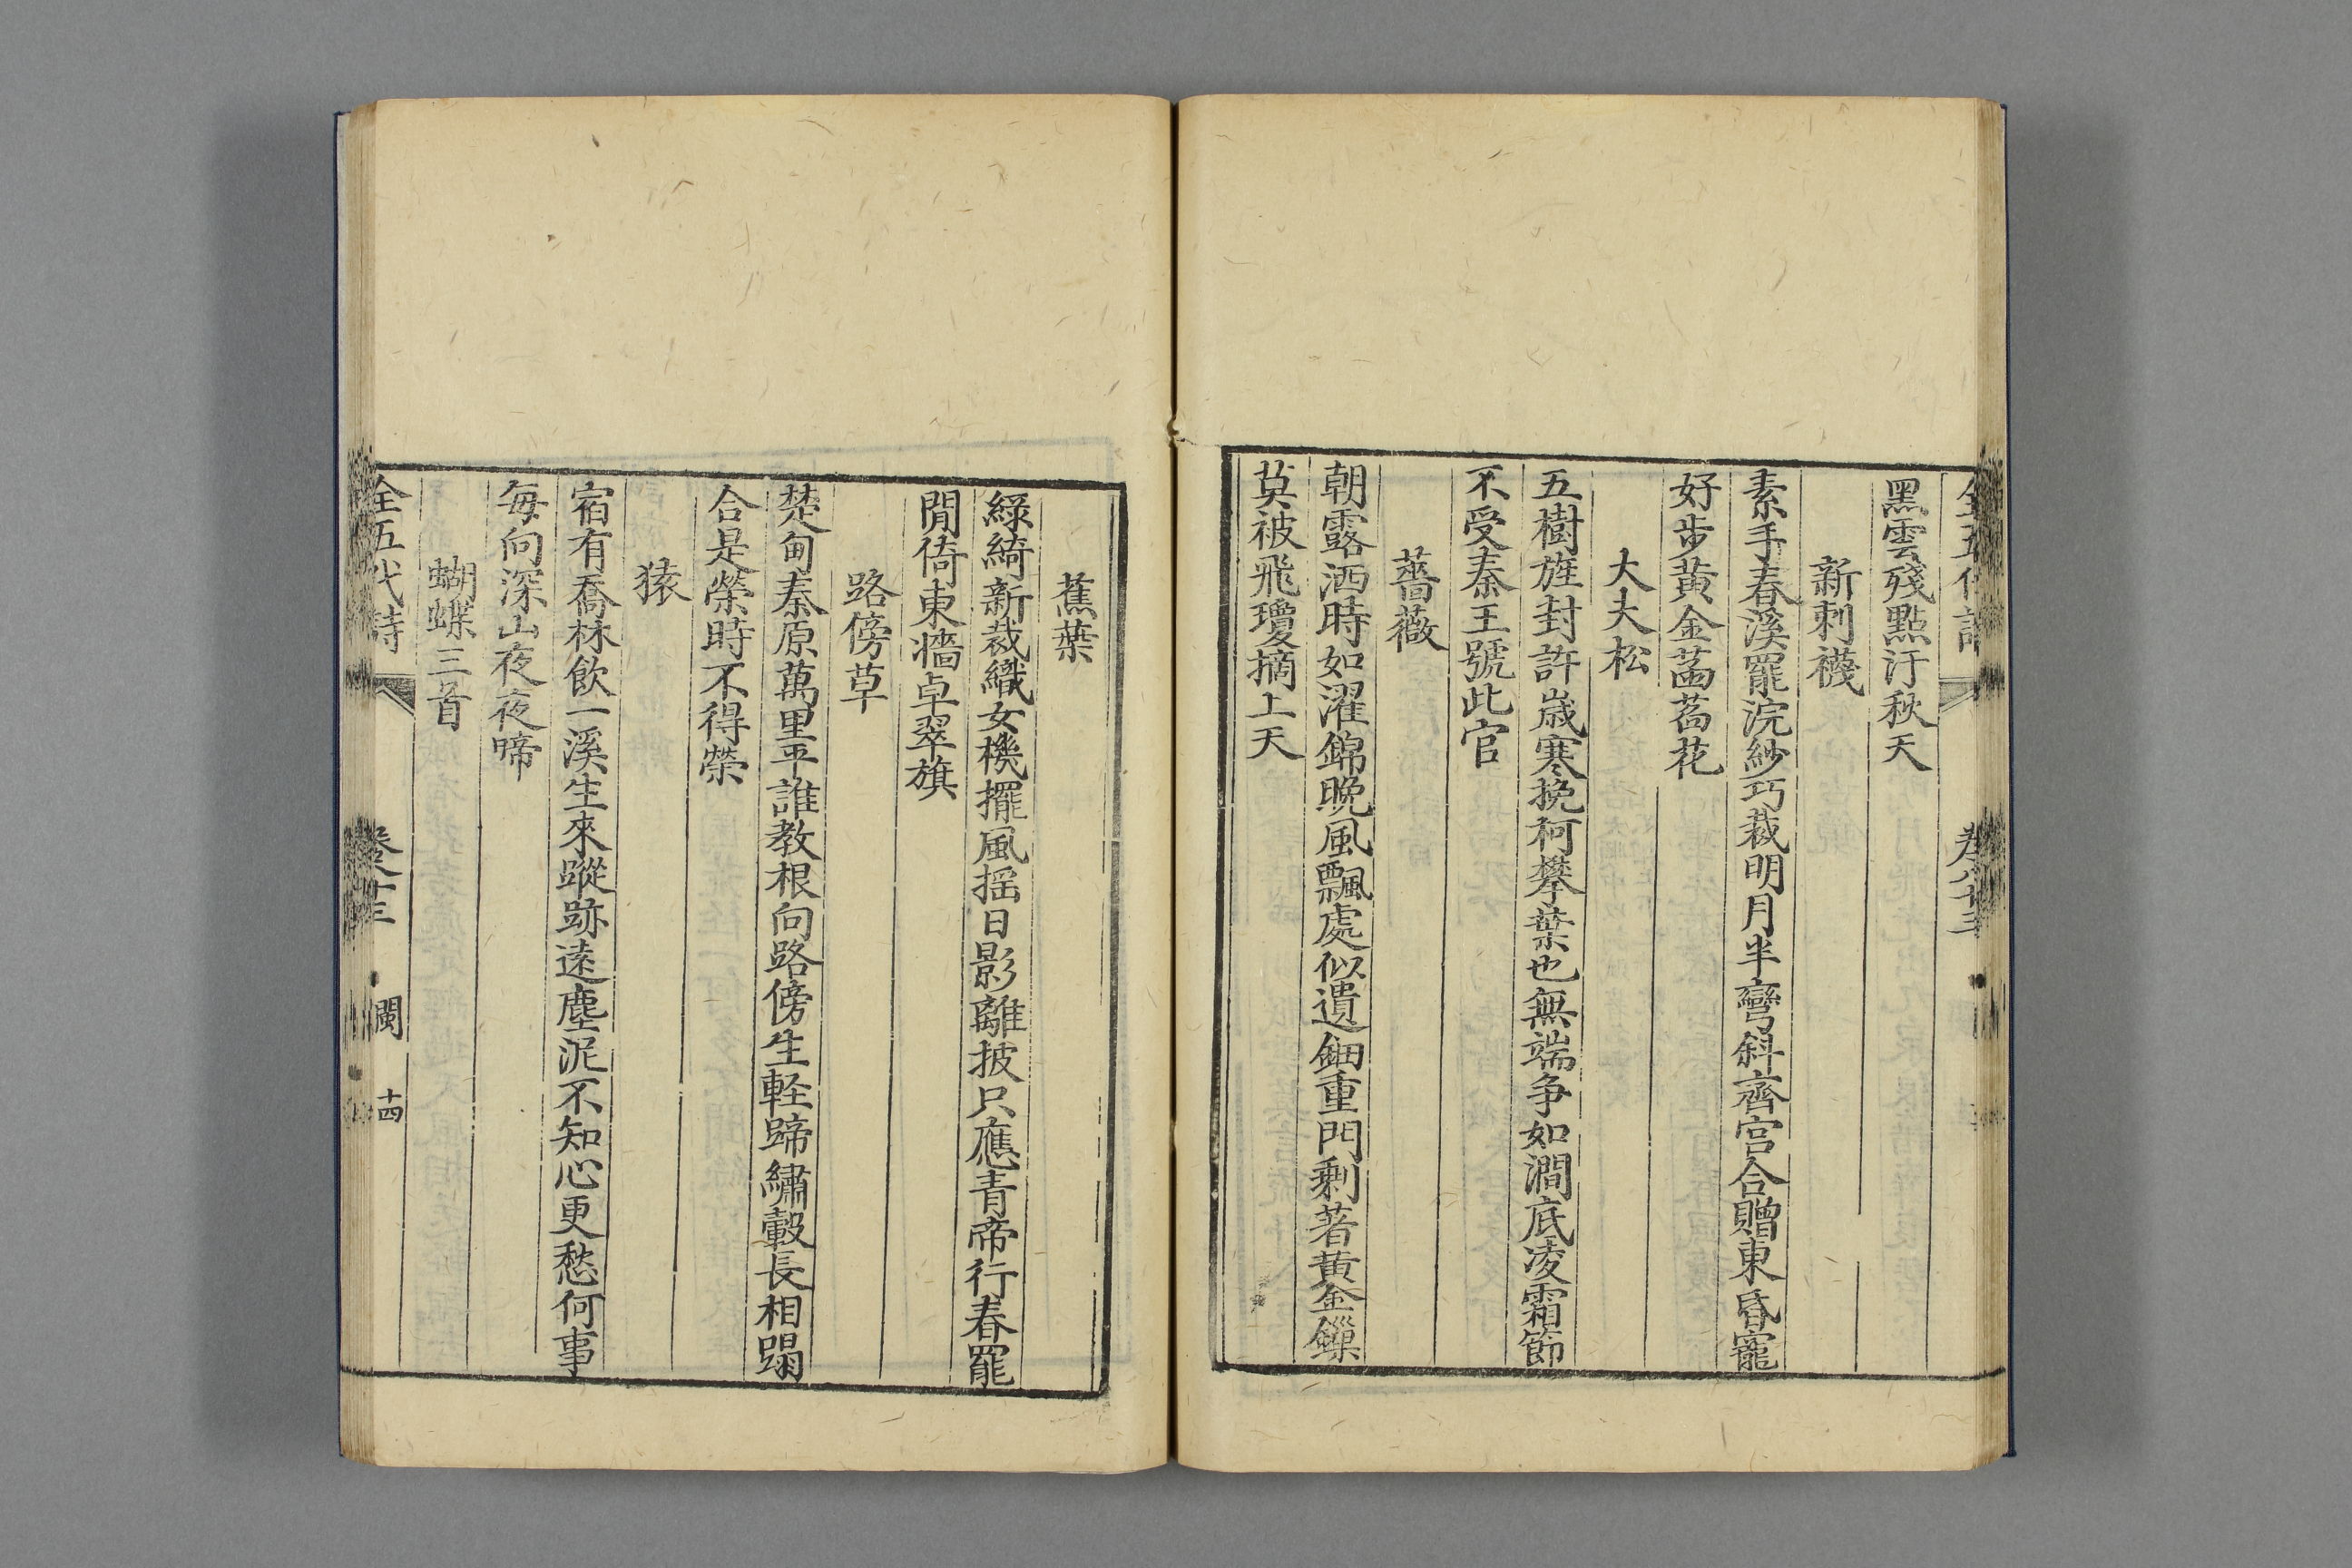 全五代詩 卷八十三
黑雲殘點汙秋天
新刺襪
素手春溪罷浣紗巧裁明月半彎斜齊宮合贈東昏寵
好步黃金菡萏花
大夫松
五樹旌封許歲寒挽柯攀葉也無端爭如澗底凌霜節
不受秦王號此官
薔薇
朝露洒時如濯錦晚風飄處似遺鈿重門剩著黃金鏁
莫被飛瓊摘上天
蕉葉
綠綺新裁織女機擺風搖日影離披只應青帝行春罷
閒倚東牆卓翠旗
路傍草
楚甸秦原萬里平誰教根向路傍生軽蹄繡轂長相蹋
合是榮時不得榮
猿
宿有喬林飲一溪生來蹤跡遠塵泥不知心更愁何事
每向深山夜夜啼
蝴蝶三首
全五代詩 卷八十三 閩 十四